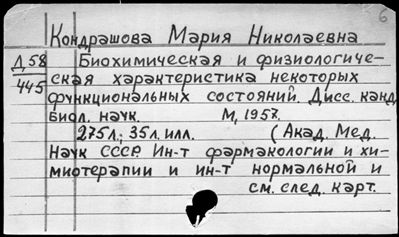 6
Кондрашова Мария Николаевна
Д 58 Биохимическая и физиологиче-
445 ская характеристика некоторых
функциональных состояний. Дисс. канд.
биол. наук. М, 1957.
275 л.; 35 л. илл. (Акад. Мед.
Наук СССР. Ин-т фармакологии и хи-
миотерапии и ин-т нормальной и
см. след. карт.